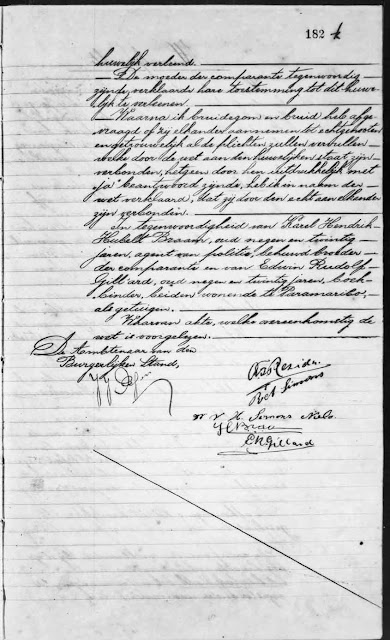 182
huwelijk verleend.
De moeder der comparante tegenwoordig
zijnde, verklaarde hare toestemming tot dit huwe-
lijk te verleenen.
Waarna ik bruidegom en bruid heb afge-
vraagd of zij elkander aannemen tot echtgenooten
en getrouwelijk al de plichten zullen vervullen
welke door de wet aan den huwelijken staat zijn
verbonden, hetgeen door hen uitdrukkelijk met
"ja" beantwoord zijnde, heb ik in naam der
wet verklaard, dat zij door den echt aan elkander
zijn verbonden.
In tegenwoordigheid van Karel Hendrik
Hubert Braam, oud negen en twintig
jaren, agent van politie, behuwd broeder
der comparante en van Edwin Rudolf
Gillard, oud negen en twintig jaren, boek-
binder, beiden wonende te Paramaribo,
als getuigen.
Waarvan akte, welke overeenkomstig de
wet is voorgelezen.
De Ambtenaar van den
Burgerlijken Stand,
Simons
H. Simons
ERGillard